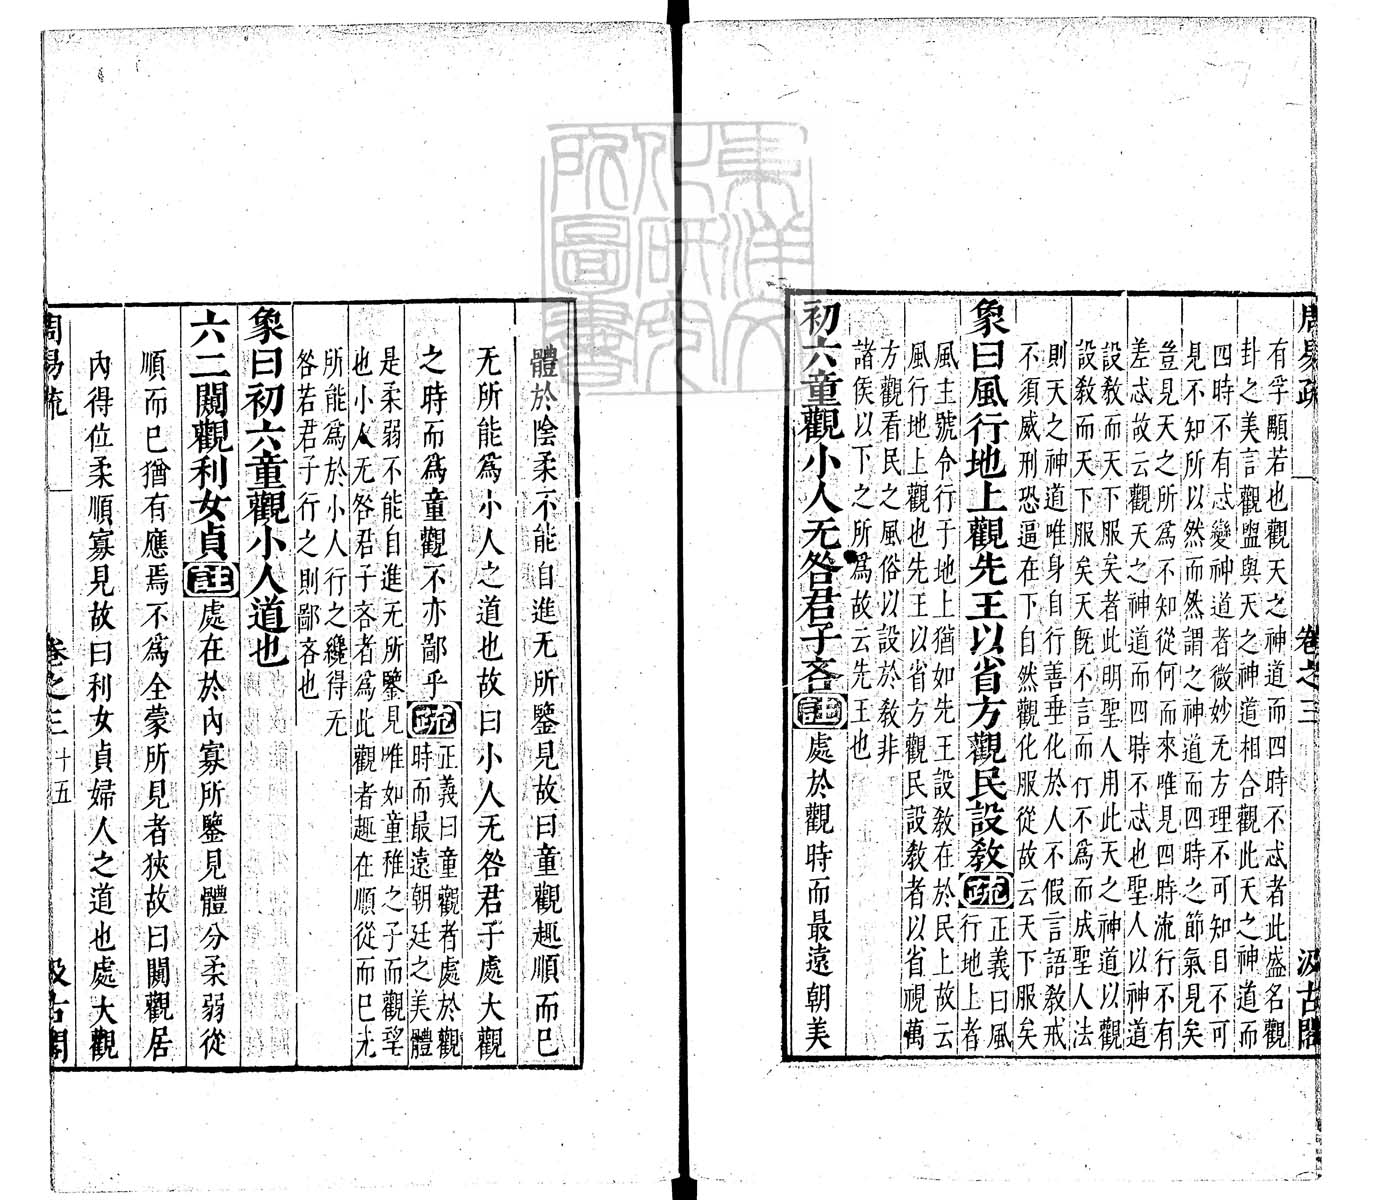 周易疏 卷之三 汲古閣
有孚顒若也觀天之神道而四時不忒者此盛名觀
卦之美言觀盥與天之神道相合觀此天之神道而
四時不有忒變神道者微妙无方理不可知目不可
見不知所以然而然謂之神道而四時之節氣見矣
豈見天之所爲不知從何而來唯見四時流行不有
差忒故云觀天之神道而四時不忒也聖人以神道
設教而天下服矣者此明聖人用此天之神道以觀
設教而天下服矣天旣不言而行不爲而成聖人法
則天之神道唯身自行善垂化於人不假言語教戒
不須威刑恐逼在下自然觀化服從故云天下服矣
象曰風行地上觀先王以省方觀民設教疏正義曰風
行地上者
風主號令行于地上猶如先王設教在於民上故云
風行地上觀也先王以省方觀民設教者以省視萬
方觀看民之風俗以設於教非
諸侯以下之所爲故云先王也
初六童觀小人无咎君子吝註處於觀時而最遠朝美
體於陰柔不能自進无所鑒見故曰童觀趣順而巳
无所能爲小人之道也故曰小人无咎君子處大觀
之時而爲童觀不亦鄙乎疏正義曰童觀者處於觀
時而最遠朝廷之美體
是柔弱不能自進无所鑒見唯如童稚之子而觀望
也小人无咎君子吝者爲此觀者趣在順從而巳无
所能爲於小人行之纔得无
咎若君子行之則鄙吝也
象曰初六童觀小人道也
六二闚觀利女貞註處在於內寡所鑒見體分柔弱從
順而巳猶有應焉不爲全蒙所見者狹故曰闚觀居
內得位柔順寡見故曰利女貞婦人之道也處大觀
周易疏 卷之三 十五 汲古閣
東洋文化研究所圖書